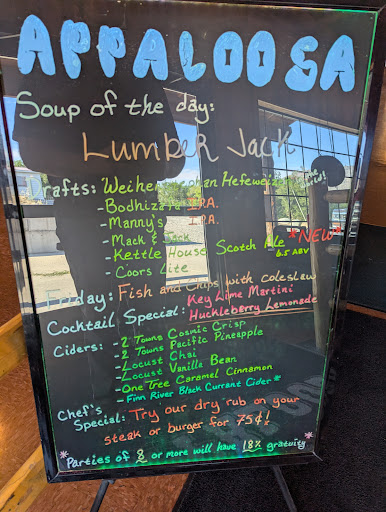 APPALOOSA
Soup of the day:
Lumber Jack
Crafts: Weihenstephan Hefeweizen
- Bodhizafa I.P.A.
- Manny's P.A.
- Mack & Jack
- Kettle House Scotch Ale *NEW*
6.5 ABV
- Coors Lite
Friday: Fish and Chips with coleslaw
Cocktail Special: Key Lime Martini
Huckleberry Lemonade
Ciders: - 2 Towns Cosmic Crisp
- 2 Towns Pacific Pineapple
- Locust Chai
- Locust Vanilla Bean
- One Tree Caramel Cinnamon
- Finn River Black Currant Cider*
Chef's
Special: Try our dry rub on your
steak or burger for 75¢!
*Parties of 8 or more will have 18% gratuity*